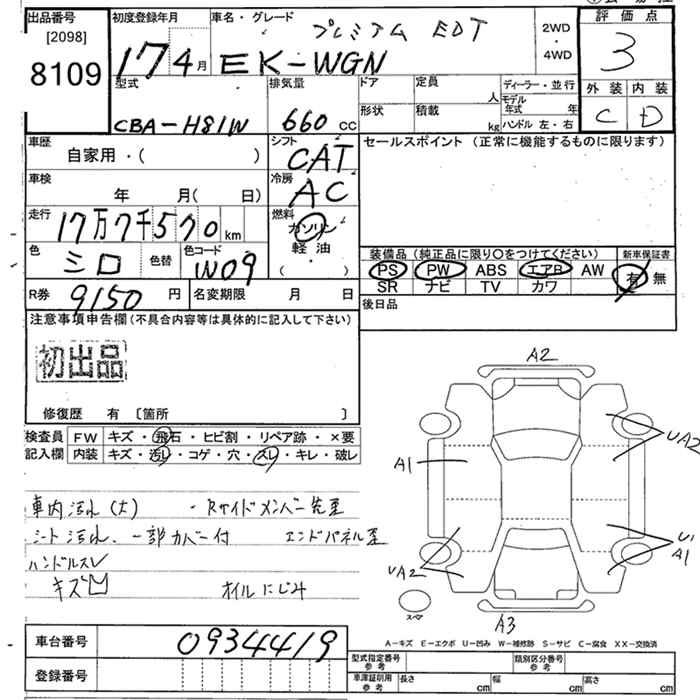 出品番号
[2098]
8109
初度登録年月
17 4月
車名・グレード
プレミアム EDT
EK-WGN
2WD
・
4WD
評価点
3
外装 内装
C D
型式
CBA-H81W
排気量
660 CC
ドア
定員
人
ディーラー・並行
モデル
年式 年
形状
積載
kg
ハンドル 左・右
車歴
自家用・( )
シフト
CAT
セールスポイント (正常に機能するものに限ります)
車検
年 月( 日)
冷房
AC
走行
17万7千570km
燃料
ガソリン
軽油
( )
色
シロ
色替
色コード
W09
装備品(純正品に限り○をつけてください)
新車保証書
PS PW ABS エアB AW
SR ナビ TV カワ
有・無
R券
9150円
名変期限 月 日
後日品
注意事項申告欄(不具合内容等は具体的に記入して下さい)
初出品
修復歴 有 〔箇所 〕
検査員
記入欄
FW キズ・飛石・ヒビ割・リペア跡・×要
内装 キズ・汚レ・コゲ・穴・スレ・キレ・破レ
車内汚れ(大) ・Rサイドメンバー先歪
シート汚れ、一部カバー付 エンドパネル歪
ハンドルスレ
キズ凹 オイルにじみ
A2
UA2
A1
U1
A1
UA2
A3
スペア
車台番号
0934419
登録番号
A-キズ E-エクボ U-凹み W-補修跡 S-サビ C-腐食 XX-交換済
型式指定番号
参考
類別区分番号
参考
車庫証明用
参考
長さ cm 幅 cm 高さ cm